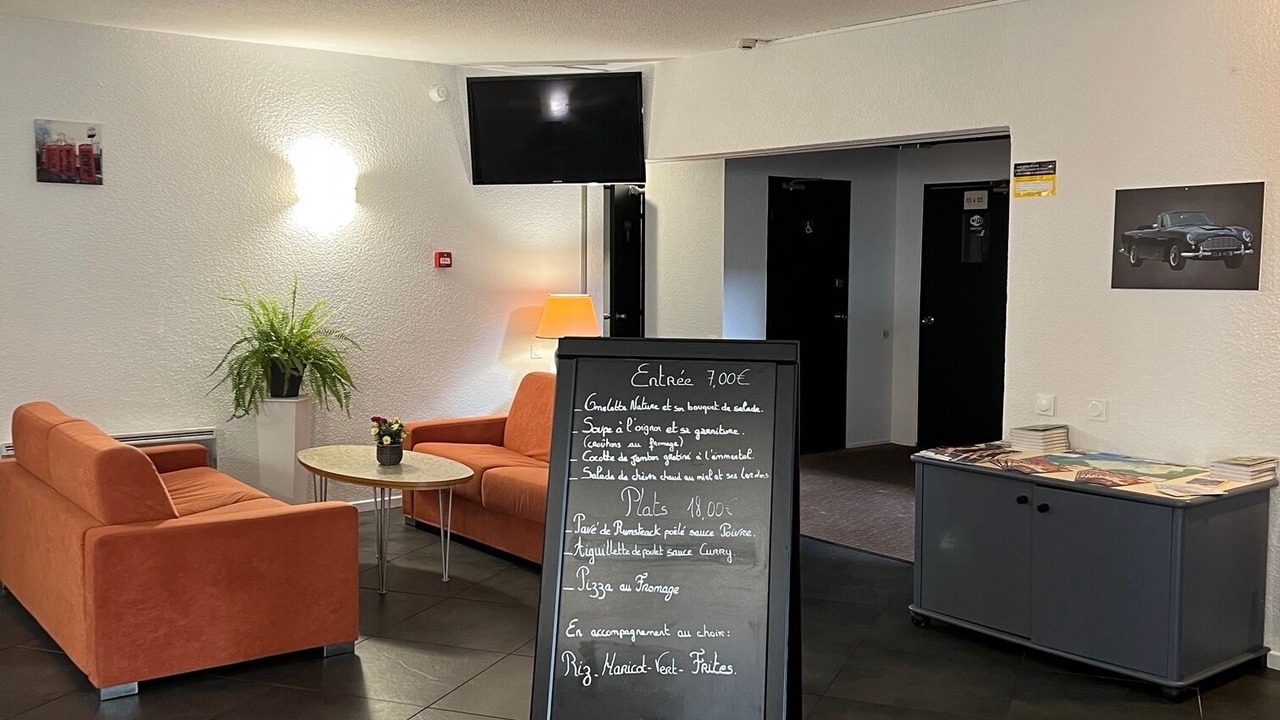 Entrée 7,00€
_ Omelette Nature et son bouquet de salade.
_ Soupe à l'oignon et sa garniture.
(croûtons au fromage)
_ Cocotte de jambon gratiné à l'emmental.
_ Salade de chèvre chaud au miel et ses lardons
Plats 18,00€
_ Pavé de Rumsteack poêlé sauce Poivre.
_ Aiguillette de poulet sauce Curry.
_ Pizza au Fromage
En accompagnement au choix:
Riz_ Haricot-Vert- Frites.